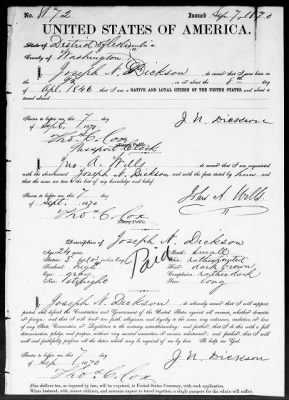 No. 11872 Issued Sep 7, 1870
UNITED STATES OF AMERICA.
State of District of Columbia
County of Washington
I, Joseph N. Dickson, do swear that I was born in the
of on or about the day of
Sept. 1846; that I am a NATIVE AND LOYAL CITIZEN OF THE UNITED STATES, and about to
travel abroad
Sworn to before me, this 7 day
of Sept., 1870. J. N. Dickson
Thos C. Cox
Passport Clerk
I, Jno. A. Wills, do swear that I am acquainted
with the above-named Joseph N. Dickson, and with the facts stated by him, and
that the same are true to the best of my knowledge and belief.
Sworn to before me, this 7 day
of Sept., 1870 John A. Wills
Thos C. Cox
Notary Public.
Description of Joseph N. Dickson
Age: 24 years. Mouth: small
Stature: 5 feet inches, Eng. Chin: rather pointed
Forehead: high Hair: dark brown
Eyes: gray Complexion: rather dark
Nose: straight Face: long
Paid
I, Joseph N. Dickson, do solemnly swear that I will support,
protect, and defend the Constitution and Government of the United States against all enemies, whether domestic
or foreign; and that I will bear true faith, allegiance, and loyalty to the same, any ordinance, resolution, or law
of any State Convention or Legislature to the contrary notwithstanding; and further, that I do this with a full
determination, pledge, and purpose, without any mental reservation or evasion whatsoever; and further, that I will
well and faithfully perform all the duties which may be required of me by law. So help me God.
Sworn to before me, this 7 day
of Sep, 1870 J. N. Dickson
Thos C. Cox
Five dollars tax, as imposed by law, will be required, in United States Currency, with each application.
When husband, wife, minor children, and servants expect to travel together, a single passport for the whole will suffice.